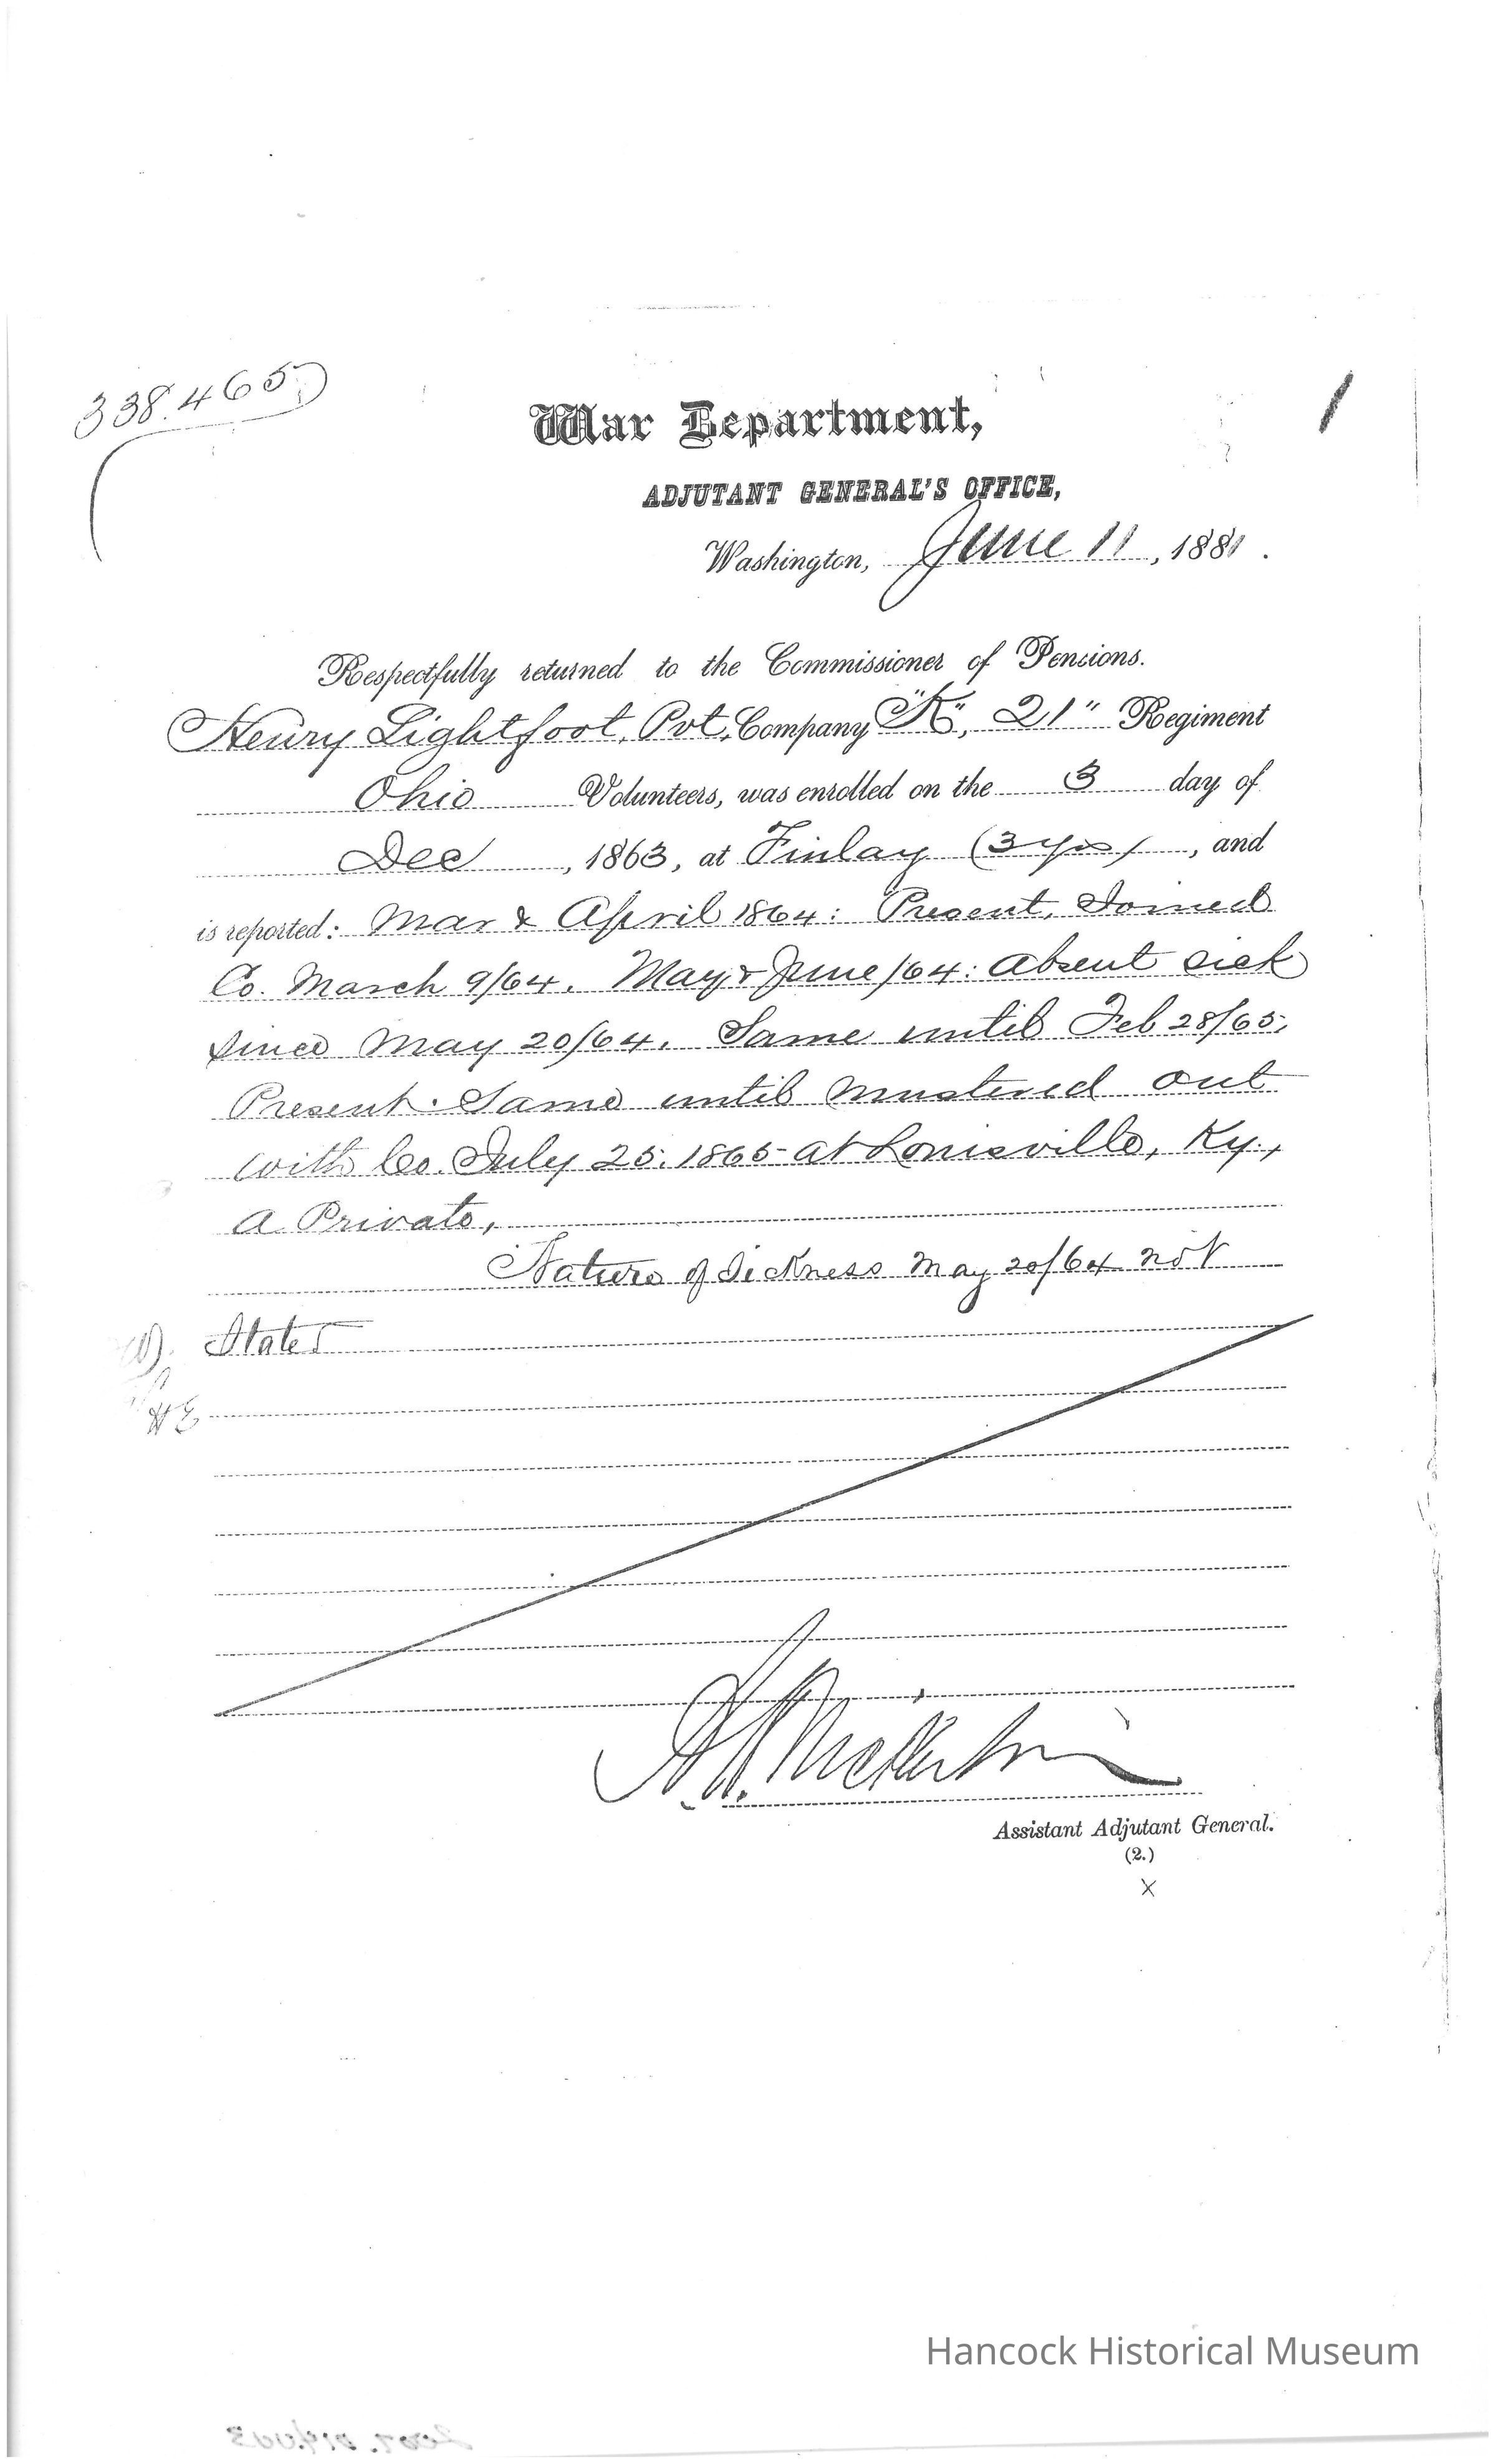 338.465
War Department,
ADJUTANT GENERAL'S OFFICE,
Washington, June 11, 1881.
Respectfully returned to the Commissioner of Pensions.
Henry Lightfoot, Pvt. Company "K", 21" Regiment
Ohio Volunteers, was enrolled on the 3 day of
Dec, 1863, at Finlay (3 yrs), and
is reported: Mar & April 1864: Present. Joined
Co. March 9/64. May & June/64: Absent sick
since May 20/64. Same until Feb 28/65,
Present. Same until mustered out
with Co. July 25. 1865 at Louisville, Ky.,
a Private,
Nature of sickness May 20/64 not
Stated
Assistant Adjutant General.
(2.)
X
Hancock Historical Museum